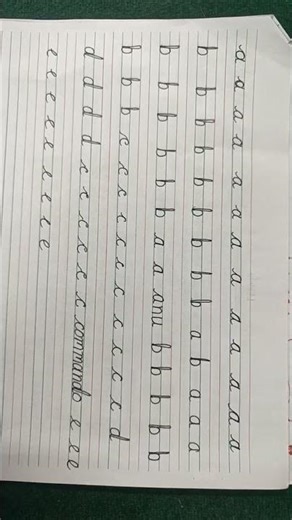 a a a a a a a a a a a a a
b b b b b b b b b a b a a a
b b b b b b a a anu b b b b b
b b b c c c c c c c c c c c c d
d d d d c c c c c c commando e e e
e e e e e e e e e